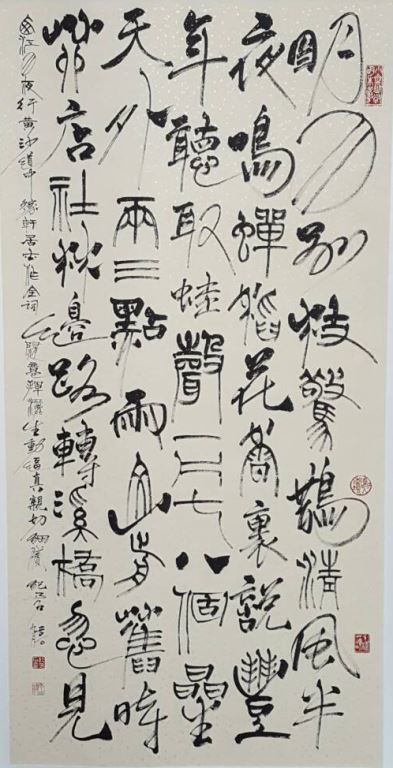 明月別枝驚鵲清風半
夜鳴蟬稻花香裏說豐
年聽取蛙聲一片七八個星
天外兩三點雨山前舊時
茆店社林邊路轉溪橋忽見
西江月夜行黃沙道中 稼軒居士作全詞 生動逼真親切細膩